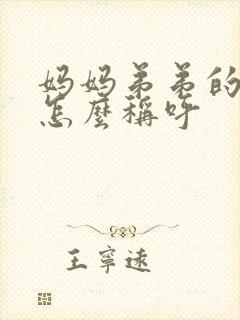 妈妈弟弟的
怎麼稱呼
王寧遠